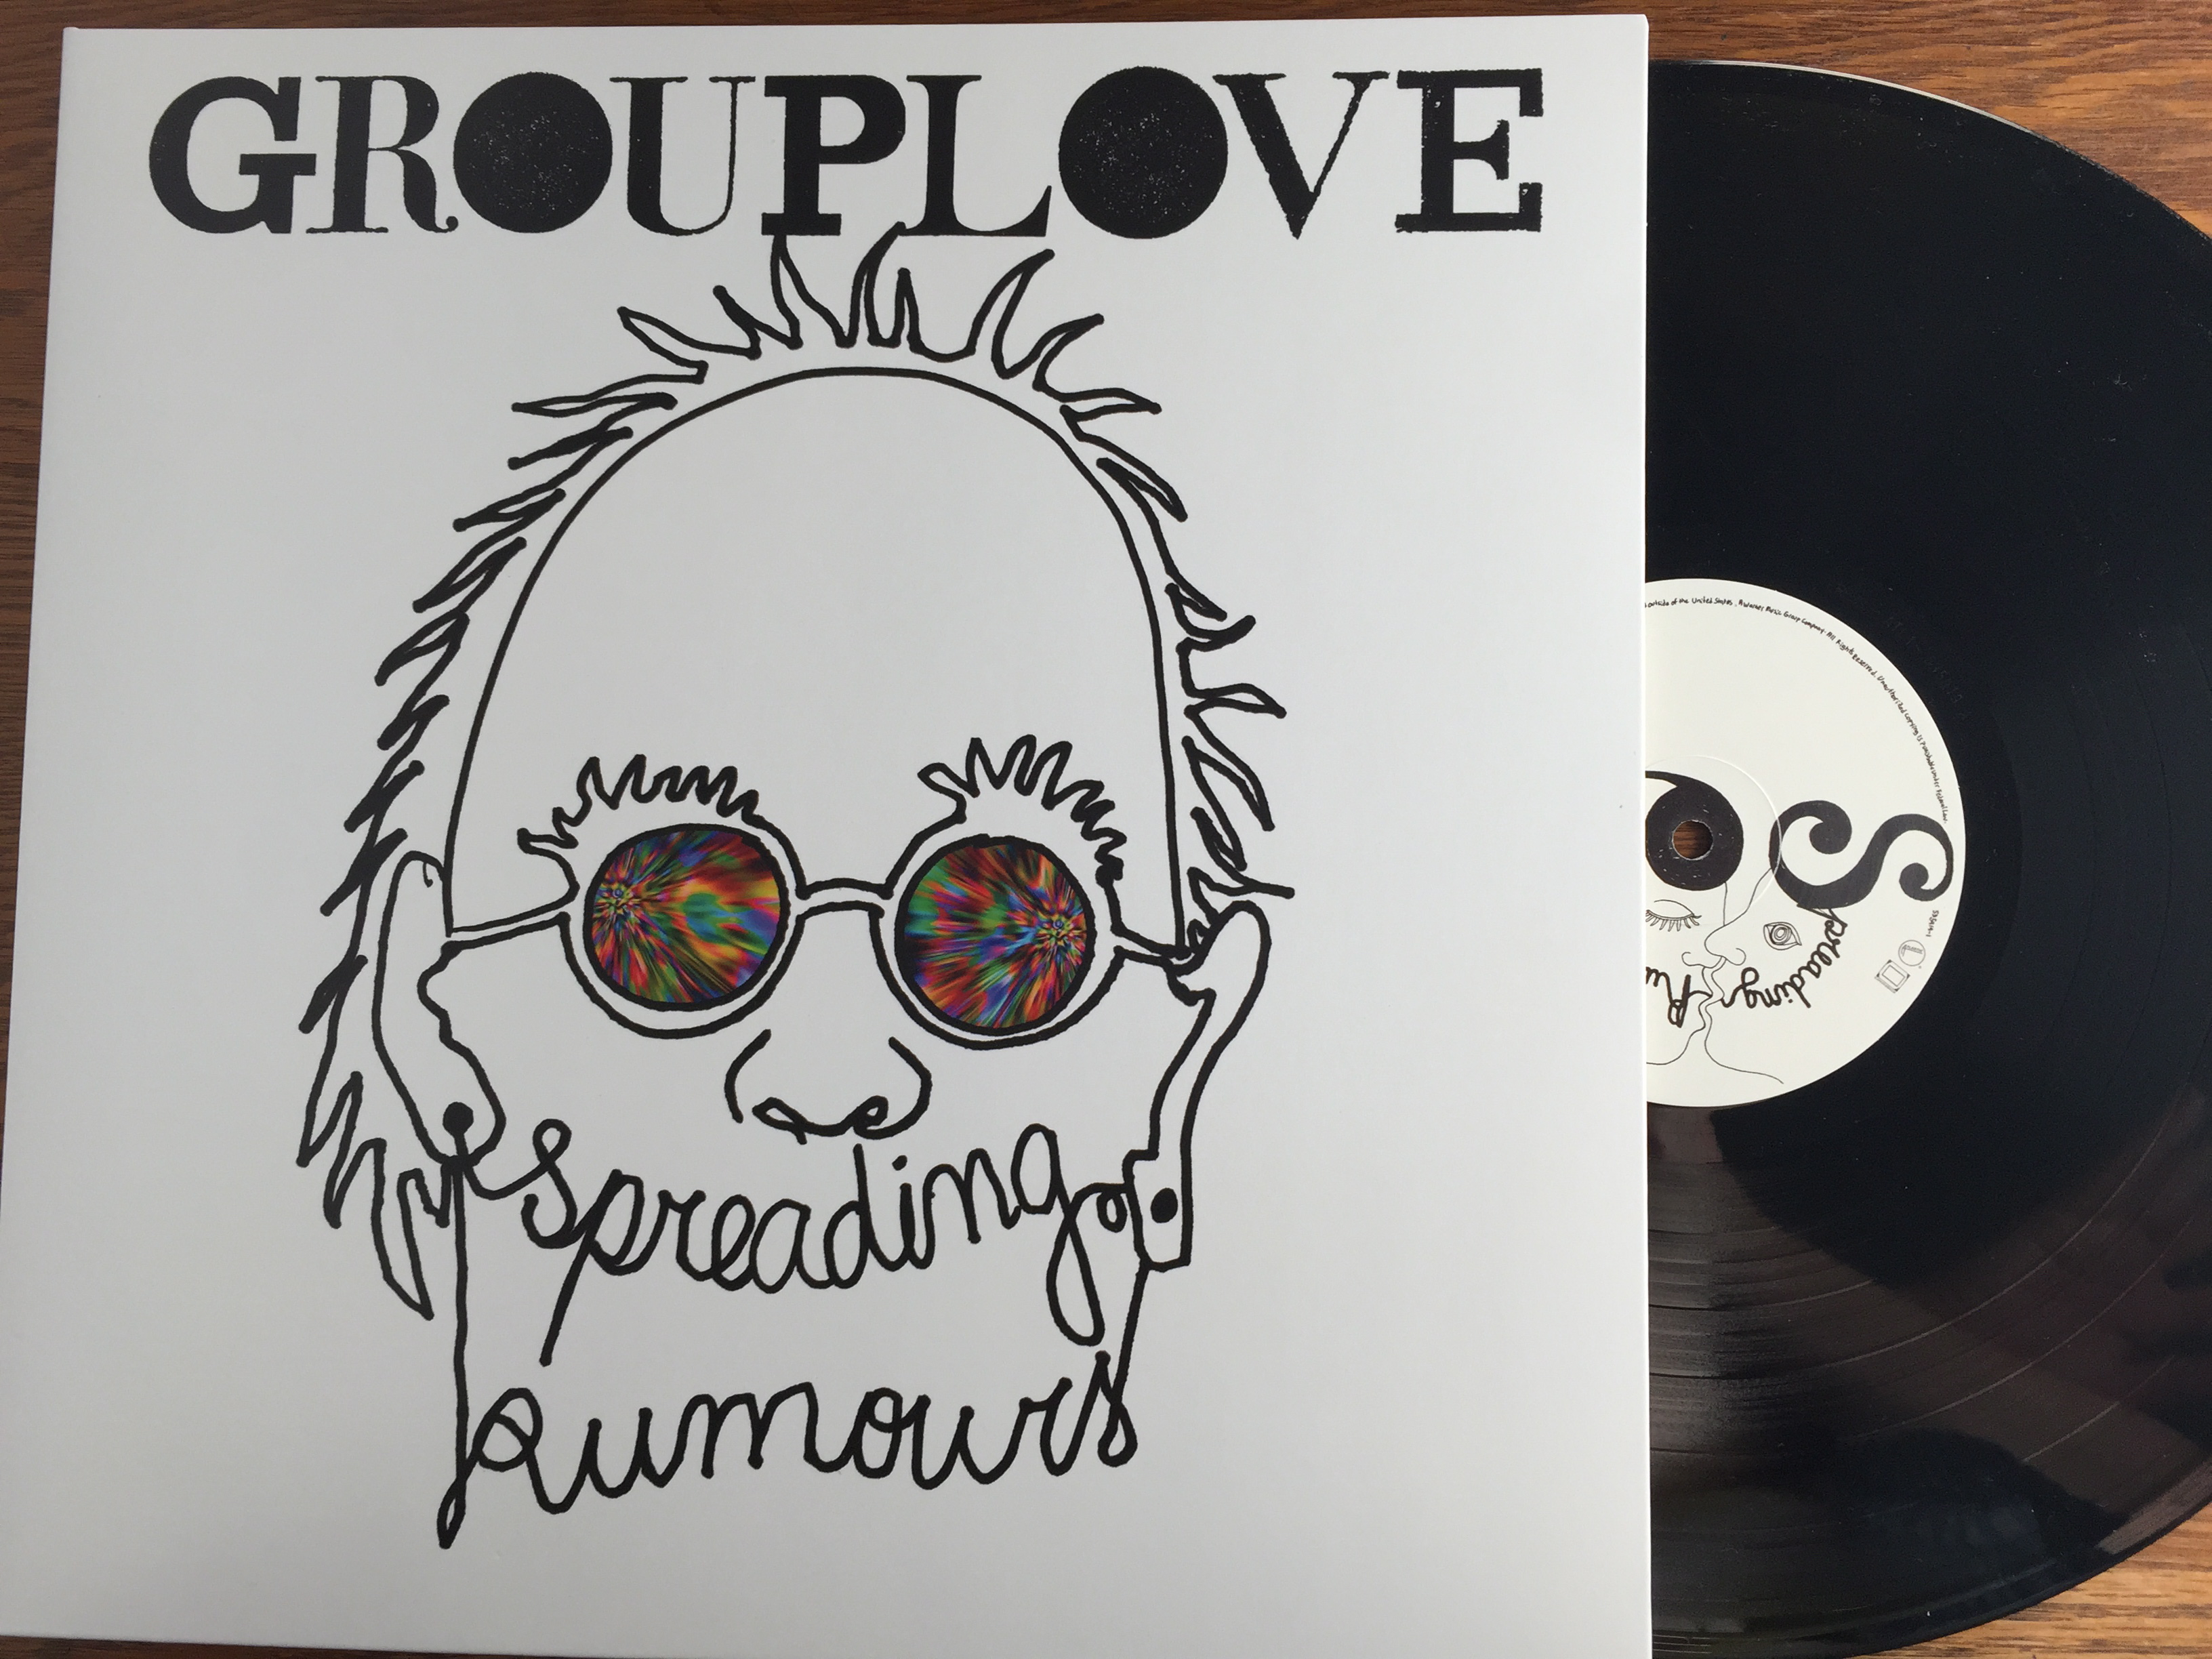 GROUPLOVE
Spreading
Rumours
outside of the United States. A Warner Music Group Company. All Rights Reserved. Unauthorized copying is punishable under Federal Law.
S
preading
Ru